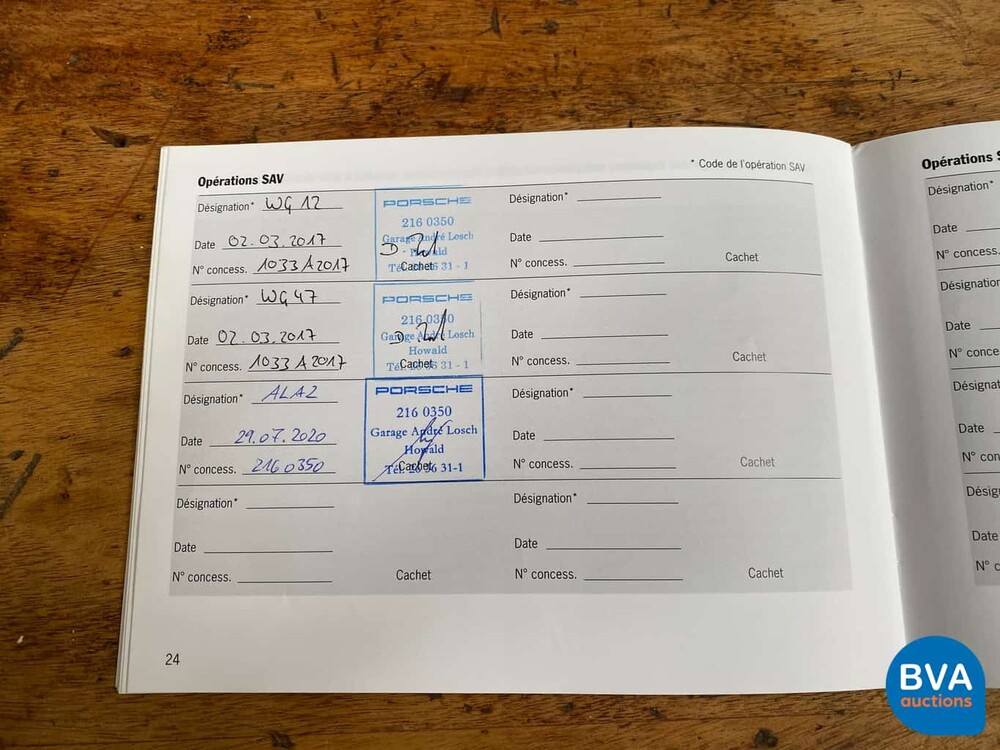 * Code de l'opération SAV
Opérations SAV
Désignation* WG 12
Date 02.03.2017
N° concess. 1033A2017
PORSCHE
216 0350
Garage André Losch
Howald
Cachet
Tél. 26 36 31 - 1
Désignation*
Date
N° concess.
Cachet
Désignation* WG 47
Date 02.03.2017
N° concess. 1033A2017
PORSCHE
216 0350
Garage André Losch
Howald
Cachet
Désignation*
Date
N° concess.
Cachet
Désignation* ALA2
Date 29.07.2020
N° concess. 2160350
PORSCHE
216 0350
Garage André Losch
Howald
Cachet
Désignation*
Date
N° concess.
Cachet
Désignation*
Date
N° concess.
Cachet
Désignation*
Date
N° concess.
Cachet
24
Opérations S
Désignation*
Date
N° concess.
Désignation
Date
N° conce
Désignati
Date
N° con
Désig
Date
N° c
BVA
auctions